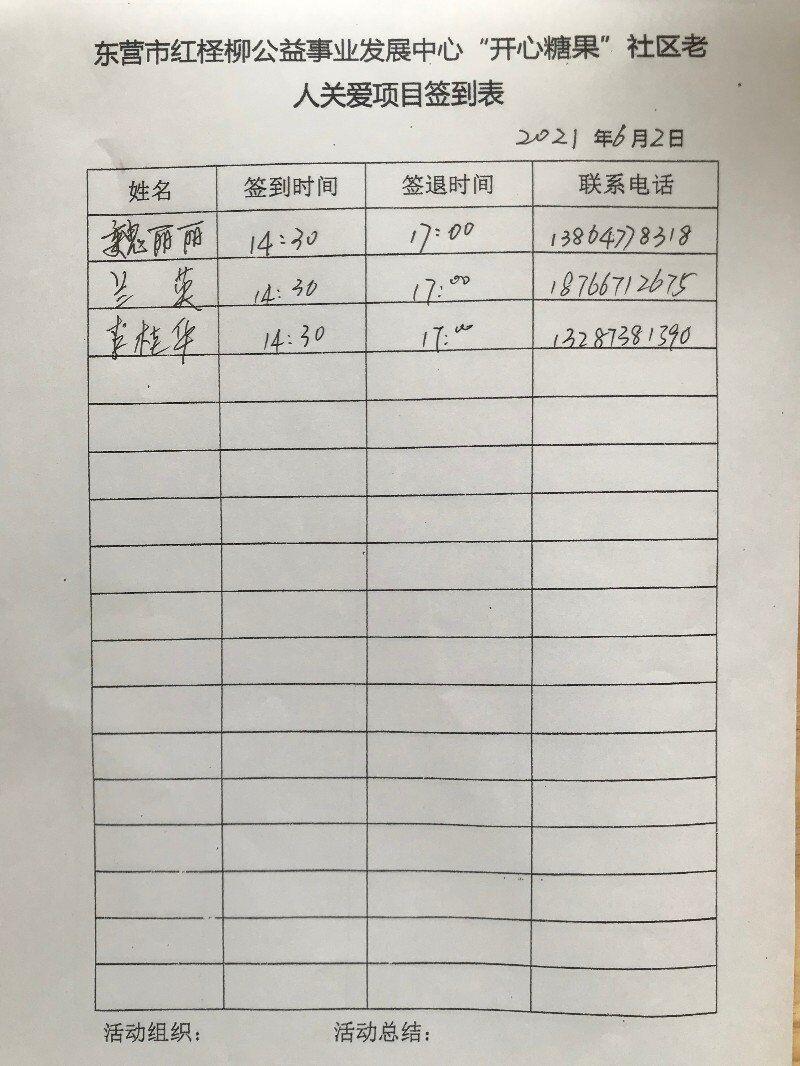 东营市红柽柳公益事业发展中心“开心糖果”社区老
人关爱项目签到表
2021 年6月2日
姓名 签到时间 签退时间 联系电话
魏丽丽 14:30 17:00 13864778318
兰英 14:30 17:00 18766712675
李桂华 14:30 17:00 13287381390
活动组织： 活动总结：